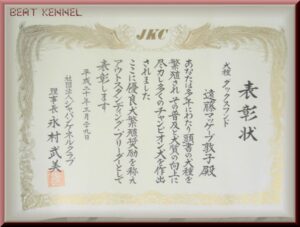 BEAT KENNEL
JKC
表彰状
犬種 ダックスフンド
遠藤マッゲーブ敦子殿
あなたは多年にわたり頭書の犬種を
繁殖され その普及と犬質の向上に
尽力し多くのチャンピオン犬を作出
されました
ここに優良犬繁殖奨励を称え
アウトスタンディング・ブリーダーとして
表彰します
平成二十年二月二十九日
社団法人ジャパンケネルクラブ
理事長 永村武美